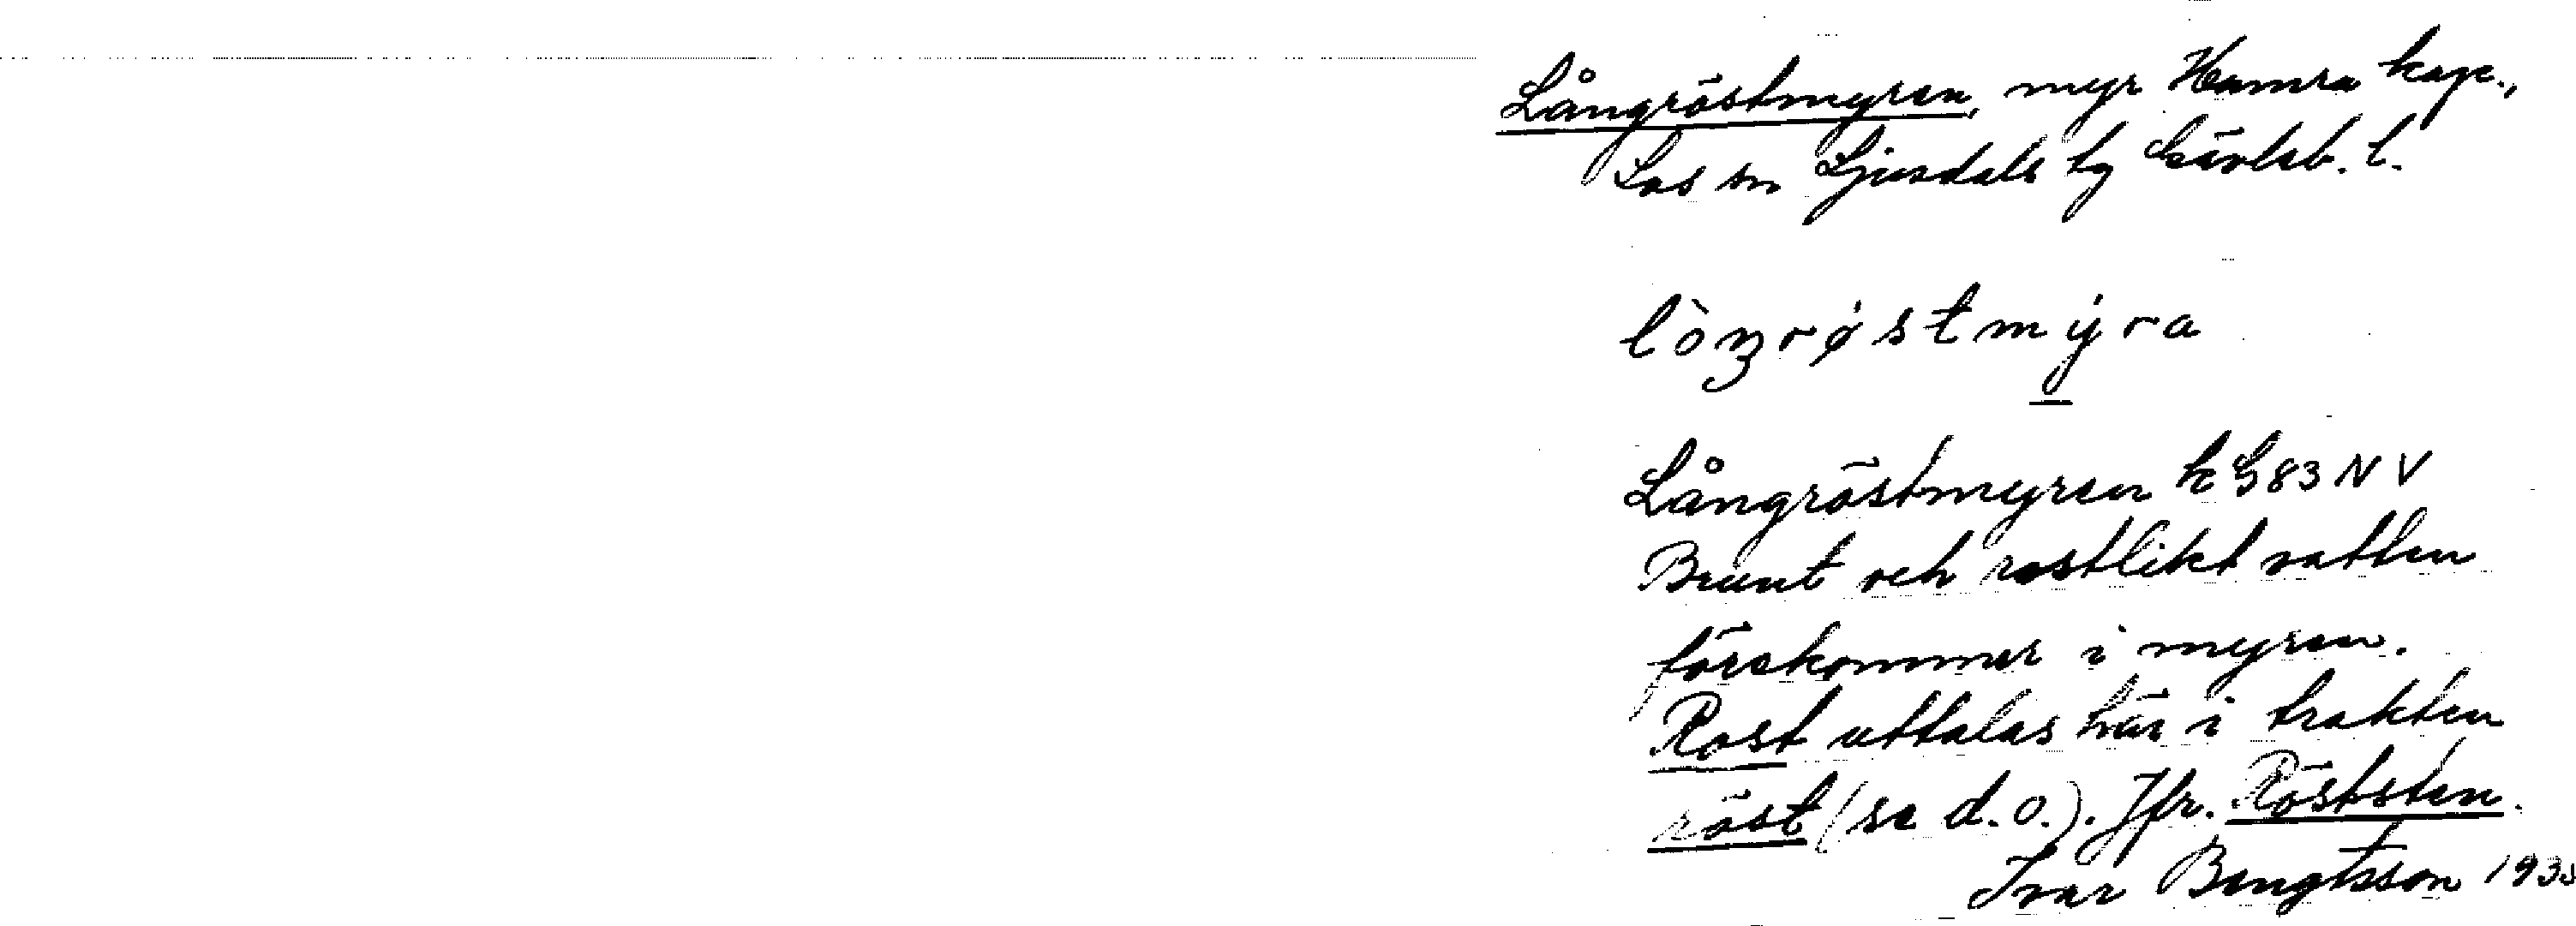 Långröstmyren, myr Hamra kap.,
Los sn Ljusdals tg Gävleb. l.
lòŋrøstmýra
Långröstmyren k G83 NV
Brunt och rostlikt vatten
förekommer i myren.
Rost uttalas här i trakten
röst (se d.o.). Jfr. Röststen.
Ivar Bengtsson